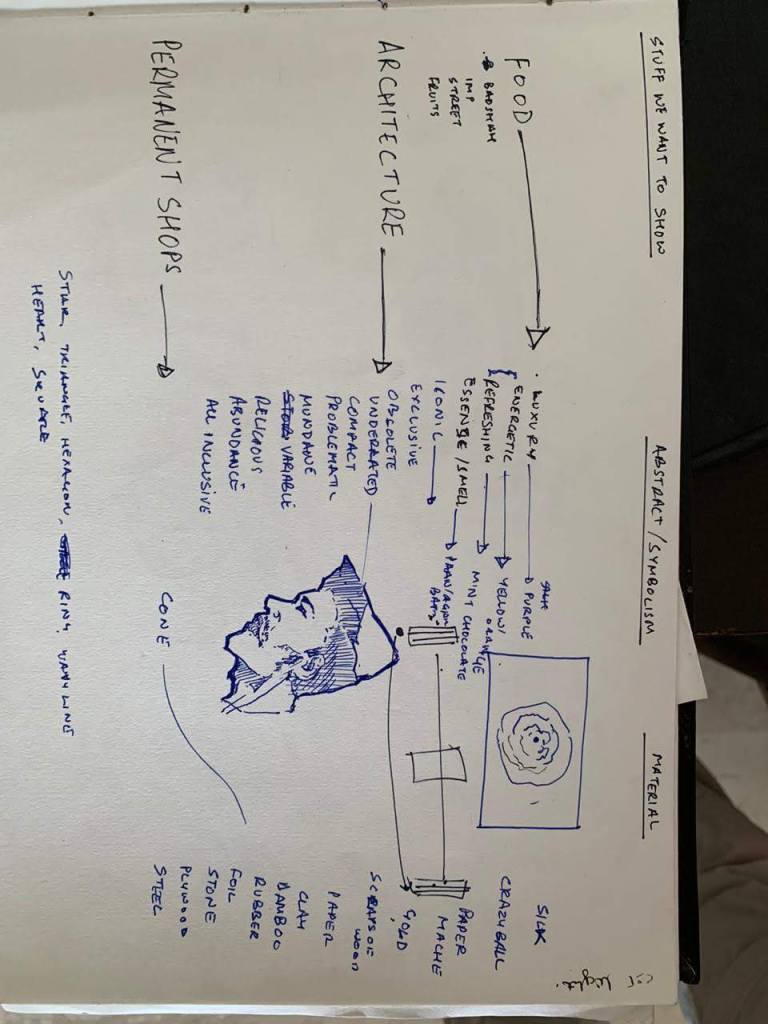 STUFF WE WANT TO SHOW
ABSTRACT/SYMBOLISM
MATERIAL
FOOD
BADSHAH
IMP
STREET
FRUITS
LUXURY
PURPLE
ENERGETIC
YELLOW/
ORANGE
REFRESHING
MINT CHOCOLATE
ESSENSE/SMELL
PAAN/AGAR
BATTI
ICONIC
EXCLUSIVE
SILK
CRAZY BALL
PAPER
MACHE
GOLD
ARCHITECTURE
OBSOLETE
UNDERRATED
COMPACT
PROBLEMATIC
MUNDANE
VARIABLE
RELIGIOUS
ABUNDANCE
ALL INCLUSIVE
SCRAPS OF
WOOD
PAPER
CLAY
BAMBOO
RUBBER
FOIL
STONE
PLYWOOD
STEEL
PERMANENT SHOPS
CONE
STAR, TRIANGLE, HEXAGON, RING, WAVY LINE
HEART, SQUARE